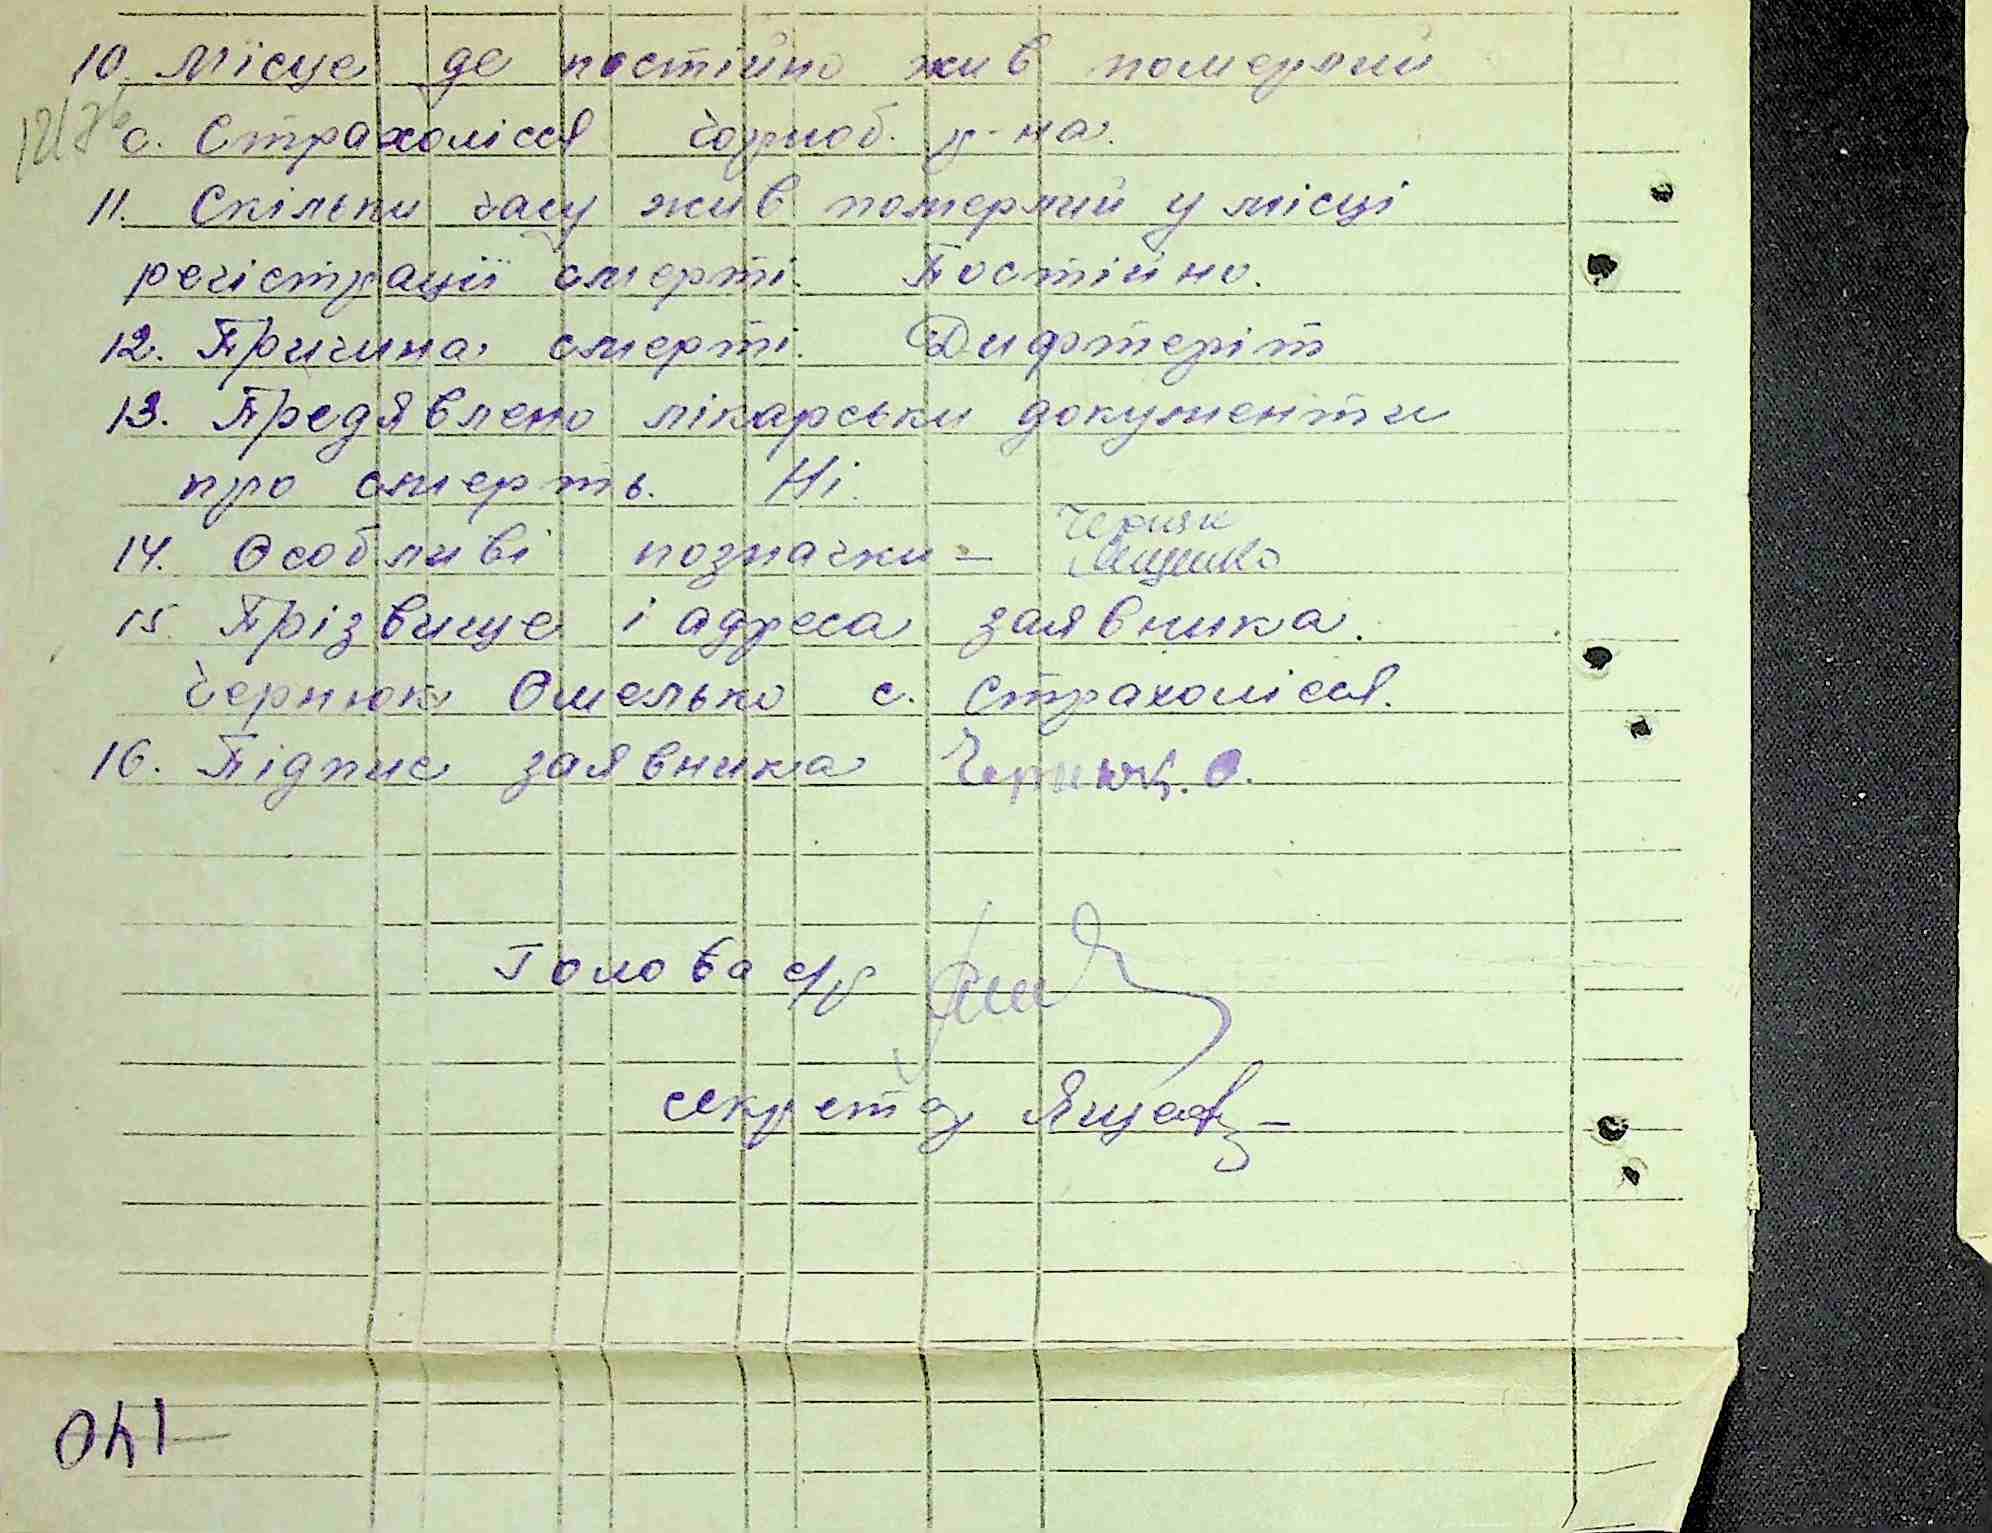 10. Місце де постійно жив померлий
с. Страхолісся Чорноб. р-на.
11. Скільки часу жив померлий у місці
регістрації смерті. Постійно.
12. Причина смерті. Дифтеріт
13. Предявлено лікарськи документи
про смерть. Ні.
14. Особливі позначки –
15. Прізвище і адреса заявника.
Чернюк Омелько с. Страхолісся.
16. Підпис заявника Чернюк. О.
Голова с/р
секретар
140